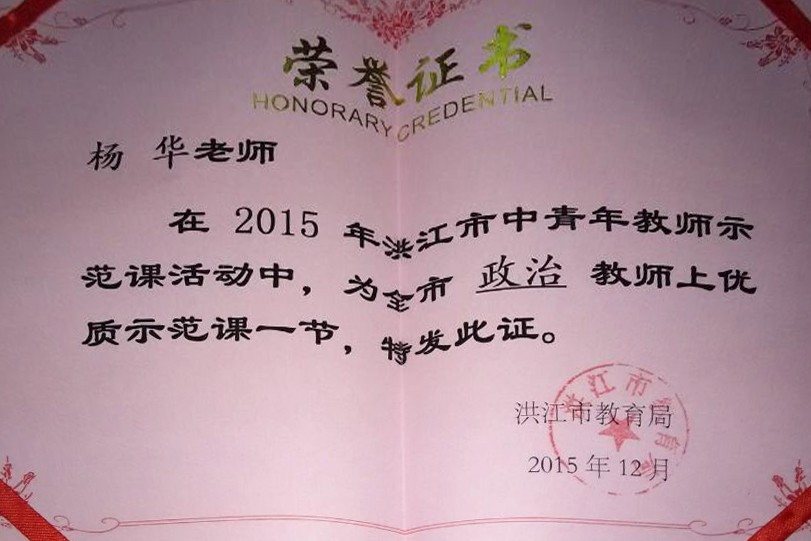 荣誉证书
HONORARY CREDENTIAL
杨 华老师
在 2015 年洪江市中青年教师示
范课活动中，为全市 政治 教师上优
质示范课一节，特发此证。
洪江市教育局
2015 年 12 月
洪江市教育局